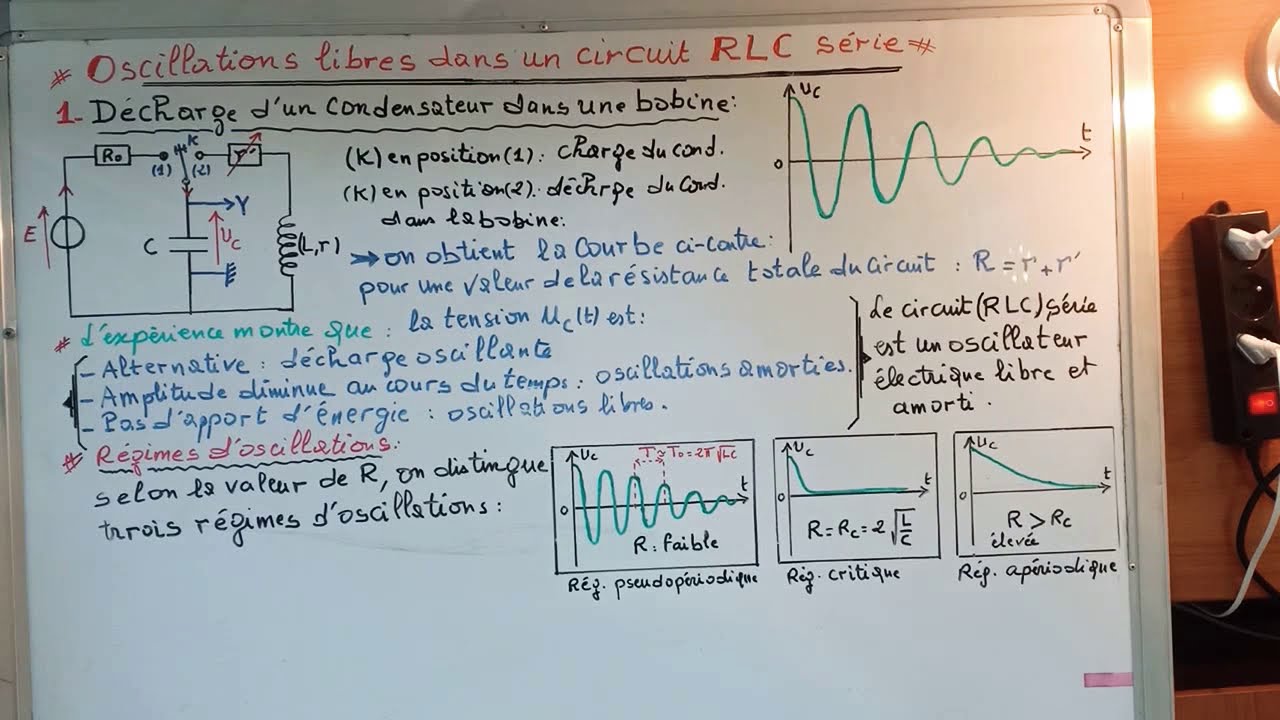 * Oscillations libres dans un circuit RLC série *
1- Décharge d'un condensateur dans une bobine:
R₀
(1)
K
(2)
r'
E
C
Y
Uc
(L,r)
(K) en position(1): charge du cond.
(K) en position(2): déchrge du cond.
dans la bobine:
⇒ on obtient la Courbe ci-contre:
pour une valeur de la résistance totale du circuit : R = r + r'
Uc
0
t
* L'expérience montre que : la tension Uc(t) est:
- Alternative : décharge oscillante
- Amplitude diminue au cours du temps : oscillations amorties.
- Pas d'apport d'énergie : oscillations libres.
Le circuit (RLC) série
est un oscillateur
électrique libre et
amorti .
* Régimes d'oscillations:
selon la valeur de R, on distingue
trois régimes d'oscillations :
Uc
T ≈ T₀ = 2π√LC
0
t
R : faible
Rég. pseudopériodique
Uc
0
t
R = Rc = 2√(L/C)
Rég. critique
Uc
0
t
R > Rc
élevée
Rég. apériodique